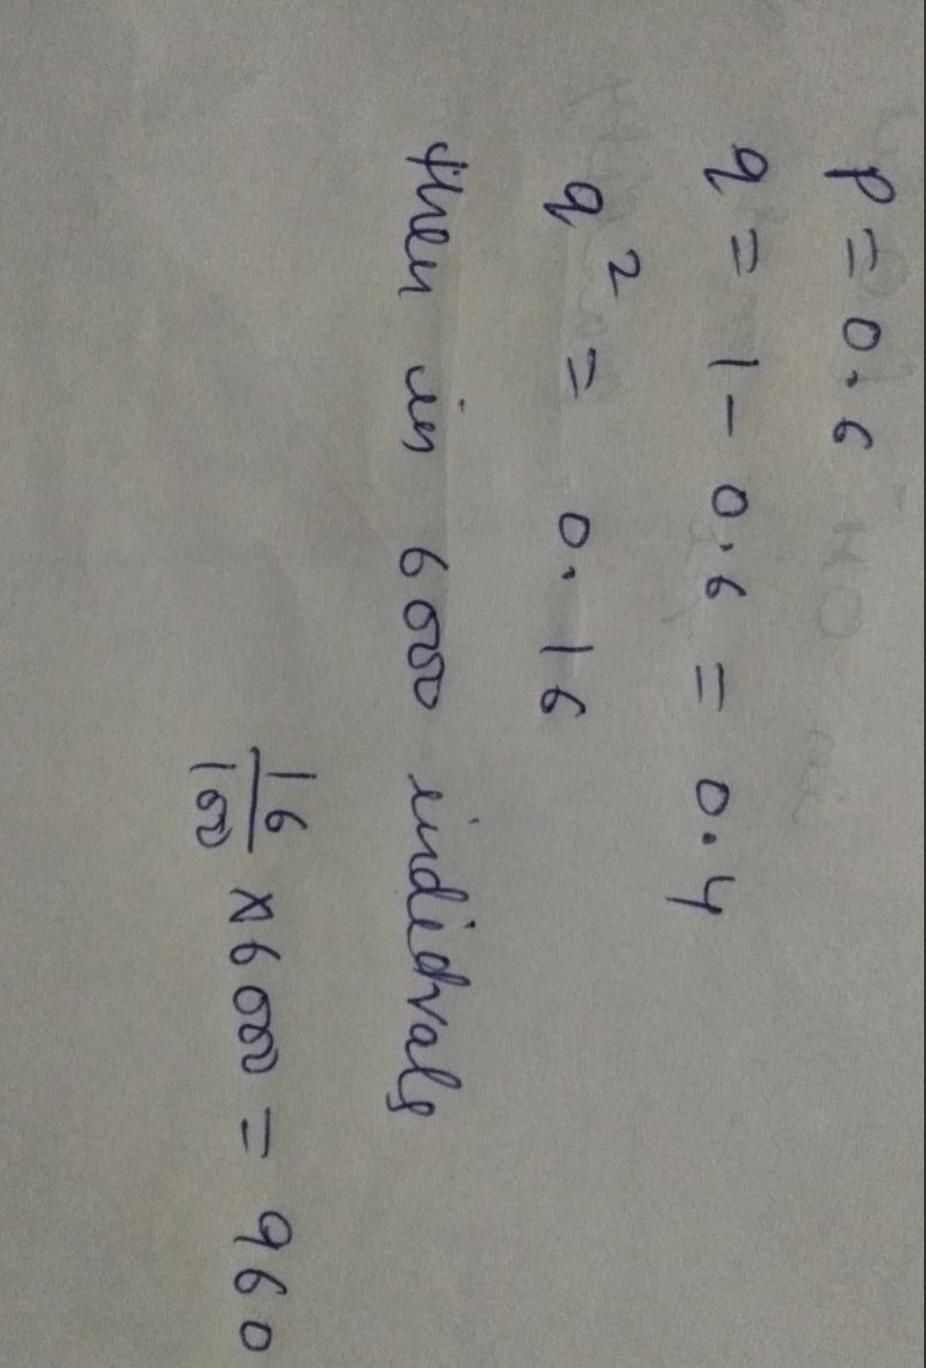 p = 0.6
q = 1 - 0.6 = 0.4
q² = 0.16
then in 6000 individvals
16/100 × 6000 = 960